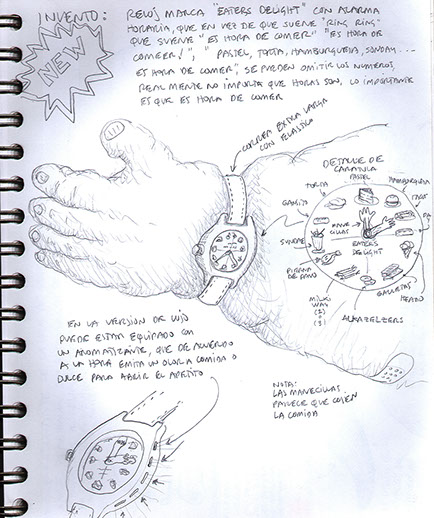 INVENTO: RELOJ MARCA "EATERS DELIGHT" CON ALARMA
HORARIA, QUE EN VEZ DE QUE SUENE "RING RING"
QUE SUENE "ES HORA DE COMER" "ES HORA DE
COMEER!", "PASTEL, TORTA, HAMBURGUESA, SUNDAY...
ES HORA DE COMER", SE PUEDEN OMITIR LOS NUMEROS,
REALMENTE NO IMPORTA QUE HORAS SON, LO IMPORTANTE
ES QUE ES HORA DE COMER
NEW
CORREA EXTRA LARGA
CON ELASTICO
DETALLE DE
CARATULA
PASTEL
HAMBURGUESA
TORTA
GANSITO
MANE
CILLAS
EATERS
DELIGHT
SUNDAE
PIERNA
DE PAVO
GALLETAS
HELADO
MILKY
WAY
(2)
o
(3)
ALKAZELZERS
EN LA VERSION DE LUJO
PUEDE ESTAR EQUIPADO CON
UN AROMATIZANTE, QUE DE ACUERDO
A LA HORA EMITA UN OLOR A COMIDA O
DULCE PARA ABRIR EL APETITO
NOTA:
LAS MANECILLAS
PARECE QUE COJEN
LA COMIDA